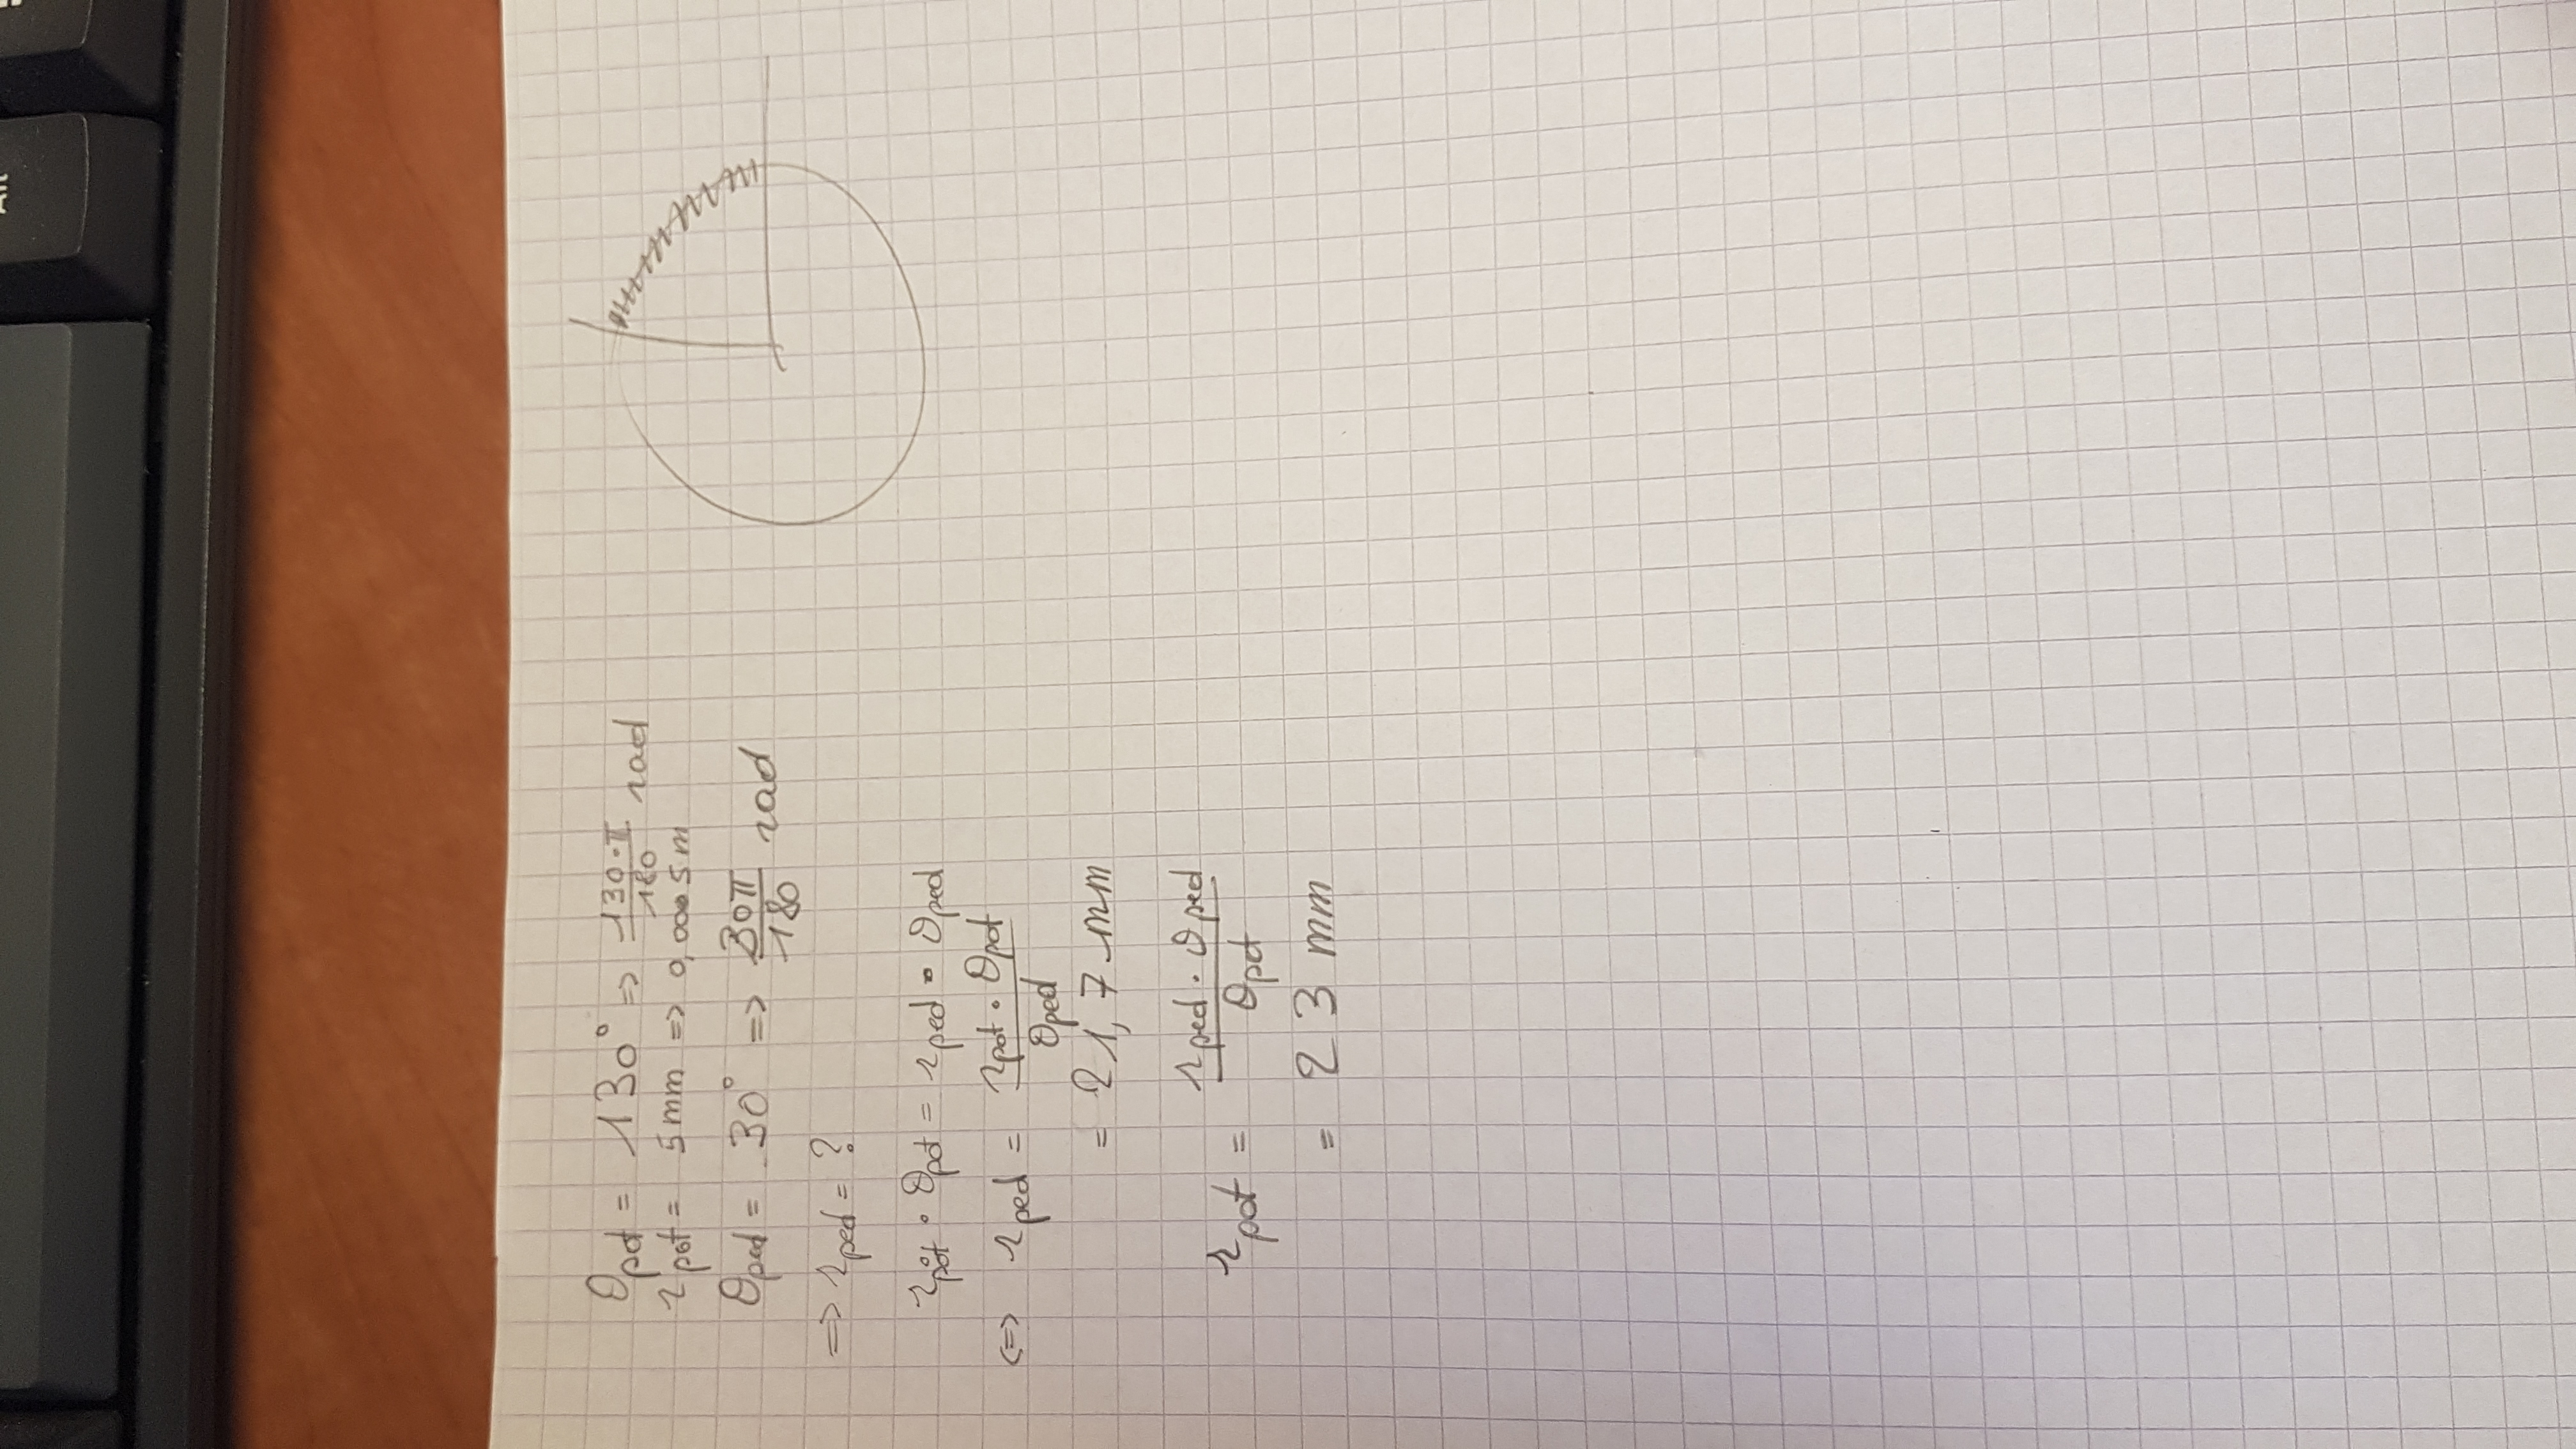 Alt
θpot = 130° => 130·π/180 rad
rpot = 5mm => 0,0005m
θped = 30° => 30π/180 rad
=> rped = ?
rpot · θpot = rped · θped
<=> rped = rpot · θpot / θped
= 21,7 mm
rpot = rped · θped / θpot
= 23 mm